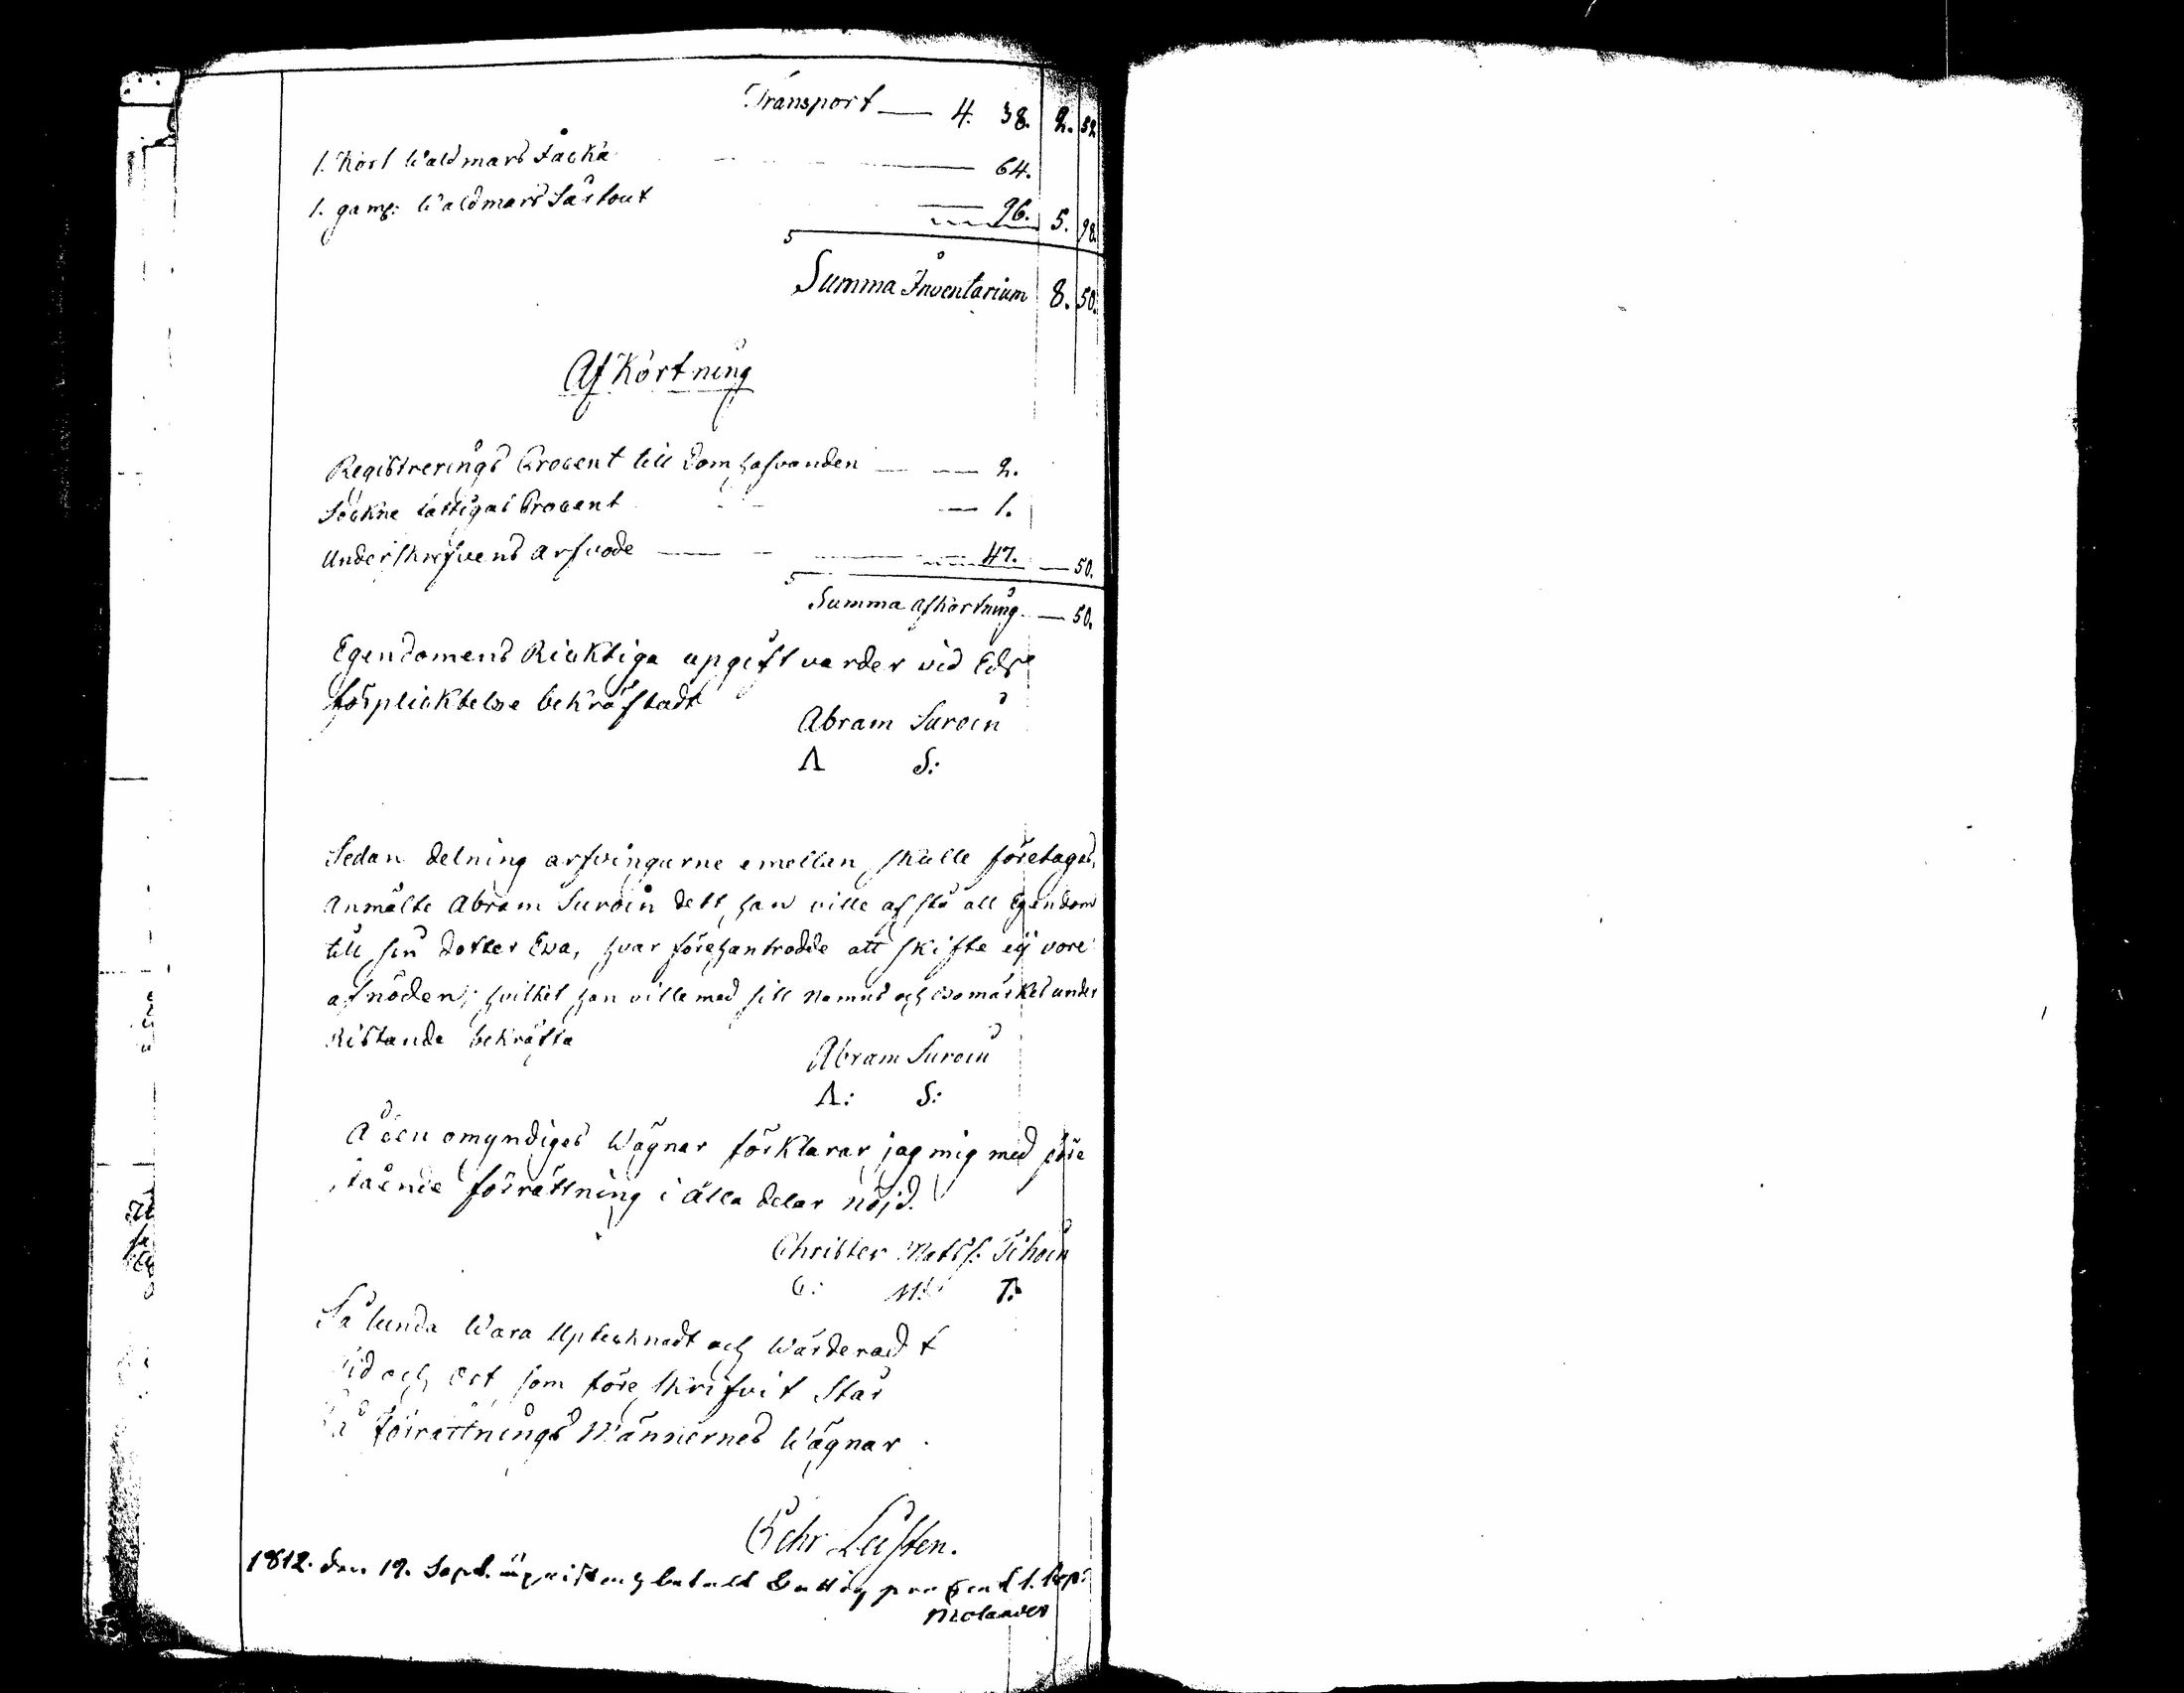 Transport — 4. 38. 2. 52
1. Kort Waldmars Jacka — 64.
1. gaml: Waldmars Sartout — 96. 5. 98.
Summa Inventarium 8. 50.
Afkortning
Registrerings Procent till Domhafvanden — 2.
Sockne fattigas Procent — 1.
Underskrefvens arfvode — 47. — 50.
Summa afkortning — 50.
Egendomens Ricktiga upgift varder vid Eds
förplicktelse bekräftadt
Abram Suroin
A S:
Sedan delning arfvingarne emellan skulle företagas,
anmälte Abram Suroin dett han ville afstå all Egendom
till sin dotter Ewa, hvarföre han trodde att skifte eij vore
af nöden; hvilket han ville med sitt namns och bomärkes under
Ristande bekräfta
Abram Suroin
A: S:
Å den omyndiges Wägnar förklarar jag mig med före
stående förrättning i alla delar nöjd.
Christer Matss: Tihoin
C: M: T:
Så lunda Wara Upteknadt och Wärderadt
tid och Ort som före skrifvit Står
På Förrättnings Männernes Wägnar
Pehr Leisten.
1812. den 19. Sept. uppvist och betalt fattig procent 1. kop:
Molander